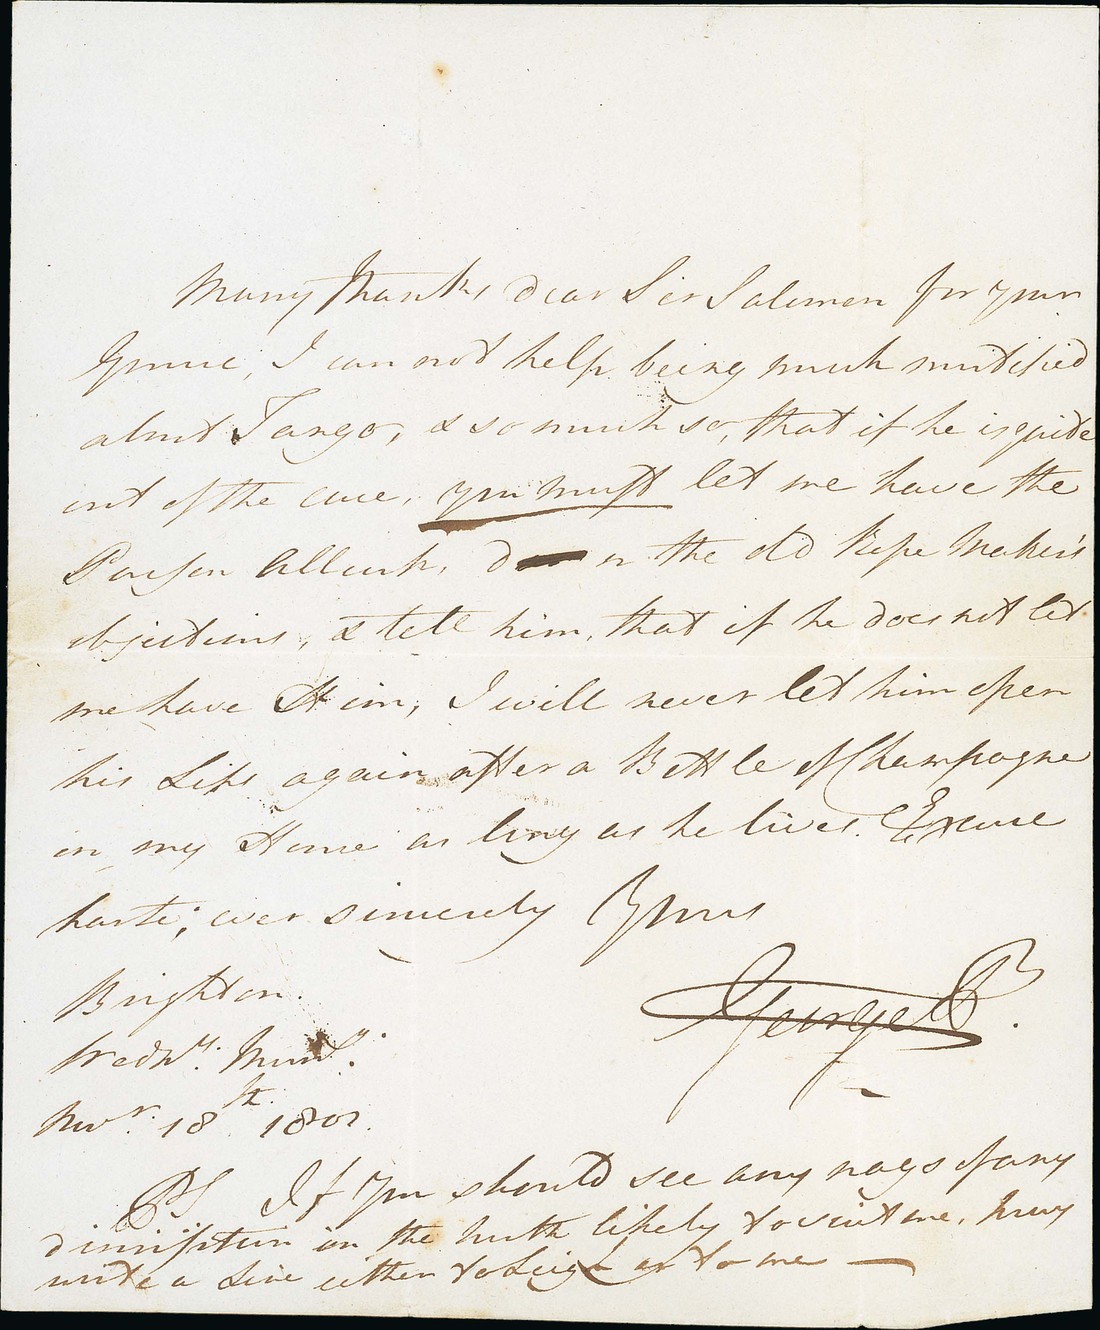 Many thanks, dear Sir Solomon for your
Grouse, I can not help being much mortified
about Tango, & so much so, that if he is quite
out of the case, you must let me have the
Parson Allurk, d—n the old Pipe Maker's
objections, & tell him, that if he does not let
me have Him, I will never let him open
his Lips again after a Bottle of Champagne
in my House as long as he lives. Excuse
haste; ever sincerely Yours
George P.
Brighton.
Wedy. Morng.
Novr. 18th. 1801.
PS If you should see any nags of any
discription in the north likely to suit me, pray
write a Line either to Leigh or to me —